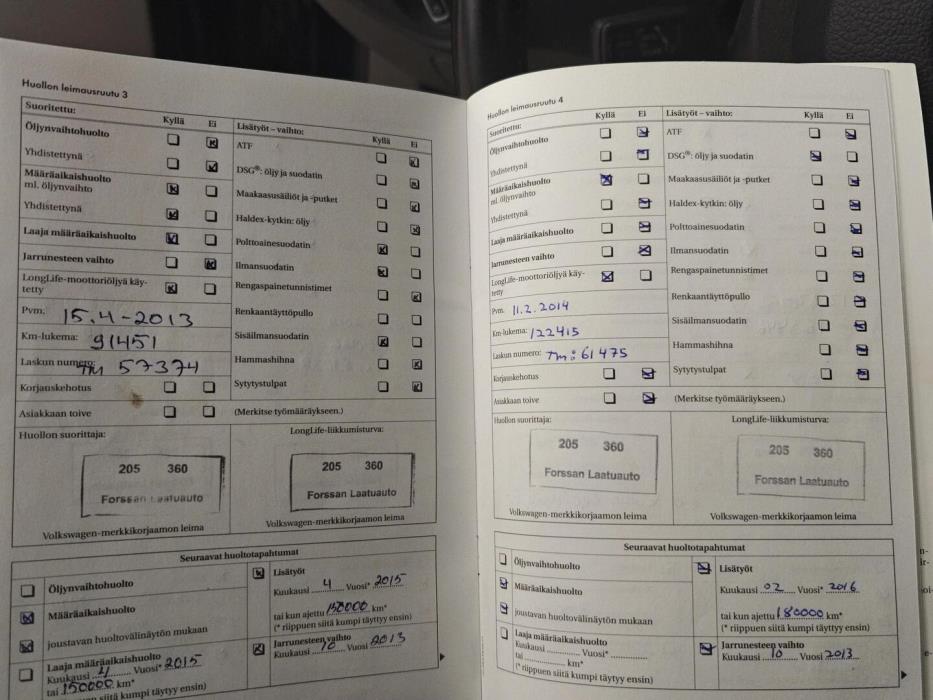 Huollon leimausruutu 3
Suoritettu: Kyllä Ei
Öljynvaihtohuolto
Yhdistettynä
Määräaikaishuolto
ml. öljynvaihto
Yhdistettynä
Laaja määräaikaishuolto
Jarrunesteen vaihto
LongLife-moottoriöljyä käy-
tetty
Pvm. 15.4-2013
Km-lukema: 91451
Laskun numero: TM 57374
Korjauskehotus
Asiakkaan toive
Lisätyöt – vaihto: Kyllä Ei
ATF
DSG®: öljy ja suodatin
Maakaasusäiliöt ja -putket
Haldex-kytkin: öljy
Polttoainesuodatin
Ilmansuodatin
Rengaspainetunnistimet
Renkaantäyttöpullo
Sisäilmansuodatin
Hammashihna
Sytytystulpat
(Merkitse työmääräykseen.)
Huollon suorittaja:
205 360
Forssan Laatuauto
Volkswagen-merkkikorjaamon leima
LongLife-liikkumisturva:
205 360
Forssan Laatuauto
Volkswagen-merkkikorjaamon leima
Seuraavat huoltotapahtumat
Öljynvaihtohuolto
Määräaikaishuolto
joustavan huoltovälinäytön mukaan
Laaja määräaikaishuolto
Kuukausi 4 Vuosi* 2015
tai 150000 km*
siitä kumpi täyttyy ensin)
Lisätyöt
Kuukausi 4 Vuosi* 2015
tai kun ajettu 150000 km*
(* riippuen siitä kumpi täyttyy ensin)
Jarrunesteen vaihto
Kuukausi 10 Vuosi 2013
Huollon leimausruutu 4
Suoritettu: Kyllä Ei
Öljynvaihtohuolto
Yhdistettynä
Määräaikaishuolto
ml. öljynvaihto
Yhdistettynä
Laaja määräaikaishuolto
Jarrunesteen vaihto
LongLife-moottoriöljyä käy-
tetty
Pvm. 11.2.2014
Km-lukema: 122415
Laskun numero: TM: 61475
Korjauskehotus
Asiakkaan toive
Lisätyöt – vaihto: Kyllä Ei
ATF
DSG®: öljy ja suodatin
Maakaasusäiliöt ja -putket
Haldex-kytkin: öljy
Polttoainesuodatin
Ilmansuodatin
Rengaspainetunnistimet
Renkaantäyttöpullo
Sisäilmansuodatin
Hammashihna
Sytytystulpat
(Merkitse työmääräykseen.)
Huollon suorittaja:
205 360
Forssan Laatuauto
Volkswagen-merkkikorjaamon leima
LongLife-liikkumisturva:
205 360
Forssan Laatuauto
Volkswagen-merkkikorjaamon leima
Seuraavat huoltotapahtumat
Öljynvaihtohuolto
Määräaikaishuolto
joustavan huoltovälinäytön mukaan
Laaja määräaikaishuolto
Kuukausi Vuosi*
tai km*
(* riippuen siitä kumpi täyttyy ensin)
Lisätyöt
Kuukausi 02 Vuosi* 2016
tai kun ajettu 180000 km*
(* riippuen siitä kumpi täyttyy ensin)
Jarrunesteen vaihto
Kuukausi 10 Vuosi 2013